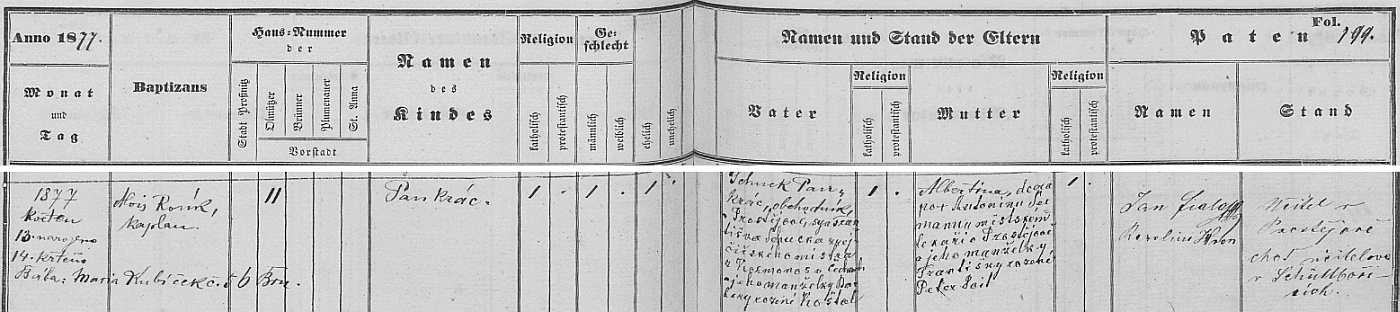 Anno 1877.
Monat
und
Tag
Baptizans
Haus-Nummer
der
Stadt Proßnitz
Olmützer
Brünner
Plumenauer
St. Anna
Vorstadt
Namen
des
Kindes
Religion
katholisch
protestantisch
Ge-
schlecht
männlich
weiblich
ehelich
unehelich
Namen und Stand der Eltern
Vater
Religion
katholisch
protestantisch
Mutter
Religion
katholisch
protestantisch
Fol.
Paten 199.
Namen
Stand
1877
13 narozeno
14. křtěno
Bába: Maria Kubíček č. 56 Brn.
Alois
kaplan.
11
Pankrác.
1 . 1 . 1 .
Schuck Pan-
krác, obchodník
v Prostějově, syn Fran-
tiška Schucka
ského mistra
z Kosmonos v Čechách
a jeho manželky Bar-
bory rozené
1 .
Albertina, dcera
po Antonínu
mannu městském
lékaři v Prostějově
a jeho manželky
Františky rozené
Peter
1 .
Jan Fiala
Karolina
učitel v
Prostějově
choť učitelova
v